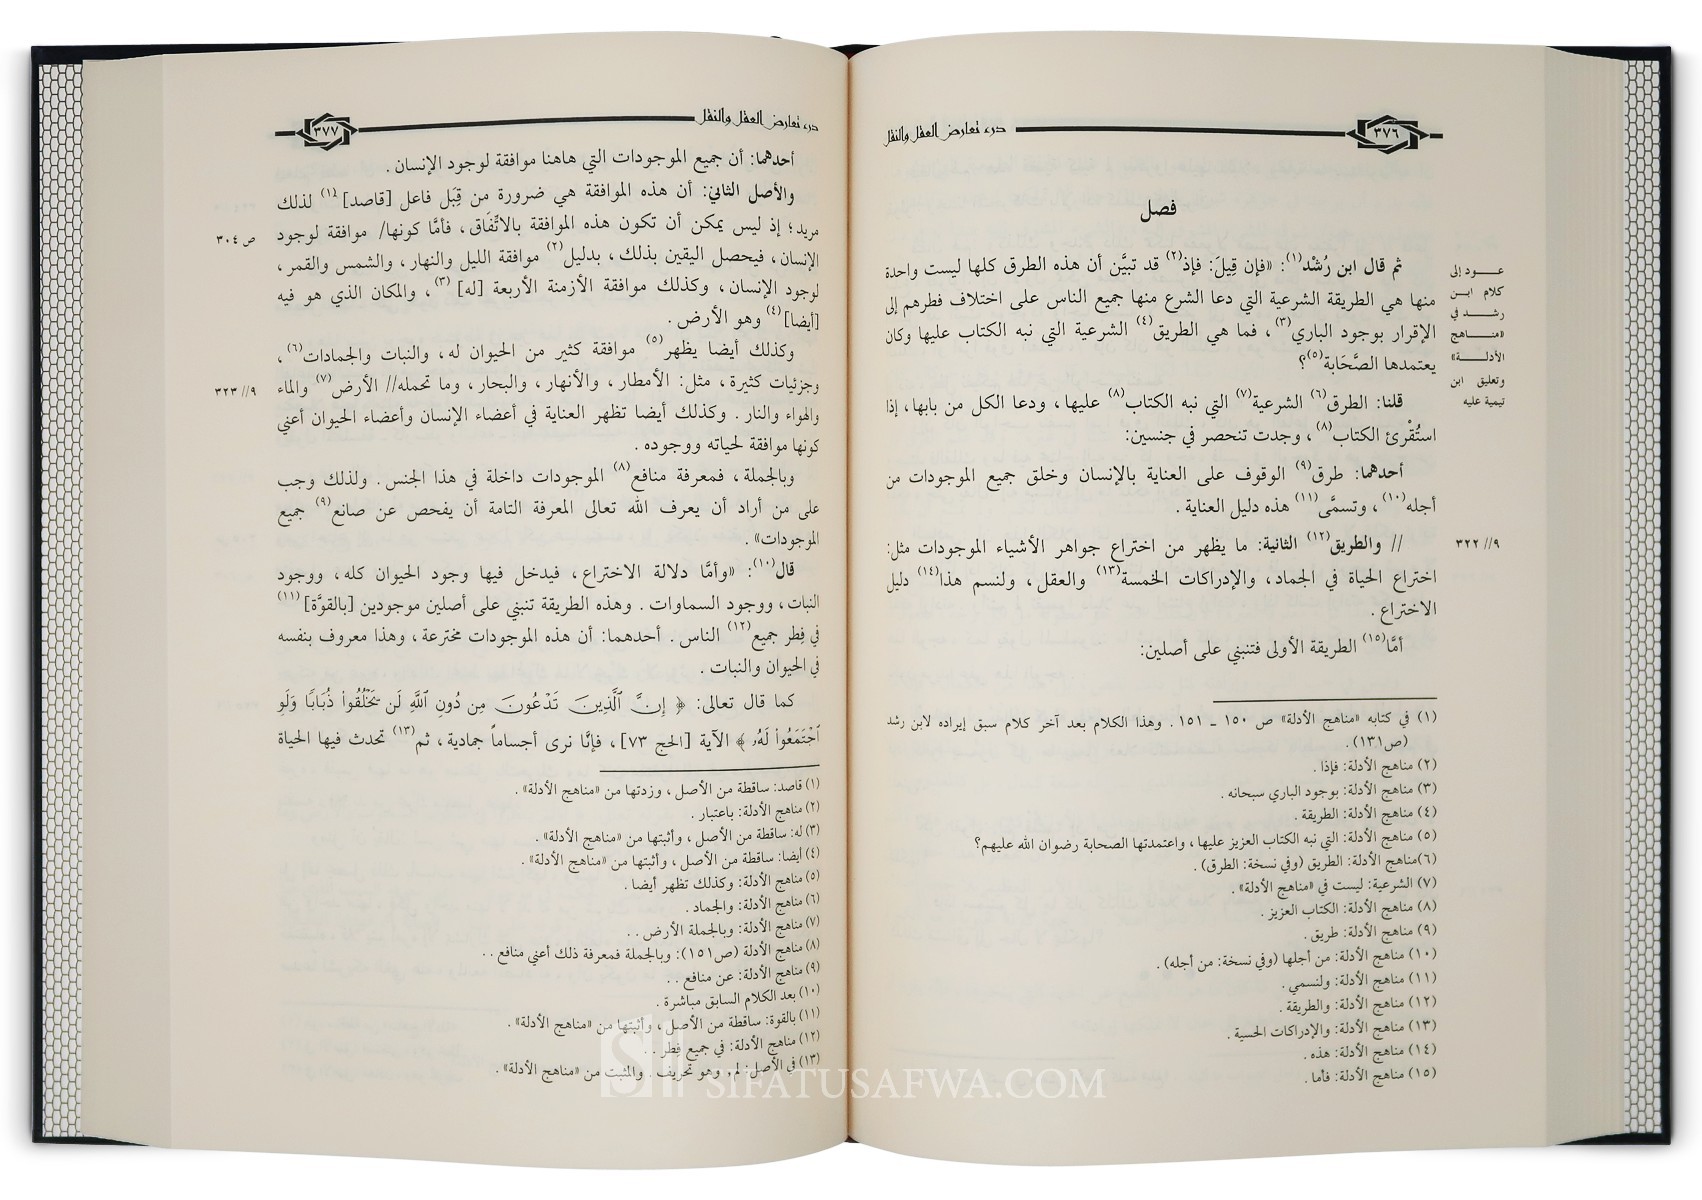 درء تعارض العقل والنقل
٣٧٦
فصل
ثم قال ابن رُشْد(١): «فإن قِيلَ: فإذ(٢) قد تبيَّن أن هذه الطرق كلها ليست واحدة
منها هي الطريقة الشرعية التي دعا الشرع منها جميع الناس على اختلاف فطرهم إلى
الإقرار بوجود الباري(٣)، فما هي الطريق(٤) الشرعية التي نبه الكتاب عليها وكان
يعتمدها الصَّحَابة(٥)؟
قلنا: الطرق(٦) الشرعية(٧) التي نبه الكتاب(٨) عليها، ودعا الكل من بابها، إذا
استُقْرئ الكتاب(٨)، وجدت تنحصر في جنسين:
أحدهما: طرق(٩) الوقوف على العناية بالإنسان وخلق جميع الموجودات من
أجله(١٠)، وتسمَّى(١١) هذه دليل العناية.
// والطريق(١٢) الثانية: ما يظهر من اختراع جواهر الأشياء الموجودات مثل:
اختراع الحياة في الجماد، والإدراكات الخمسة(١٣) والعقل، ولنسم هذا(١٤) دليل
الاختراع.
أمَّا(١٥) الطريقة الأولى فتنبني على أصلين:
عود إلى
كلام ابن
رشد في
«مناهج
الأدلة»
وتعليق ابن
تيمية عليه
٩// ٣٢٢
(١) في كتابه «مناهج الأدلة» ص ١٥٠ ـ ١٥١. وهذا الكلام بعد آخر كلام سبق إيراده لابن رشد
(ص١٣١).
(٢) مناهج الأدلة: فإذا.
(٣) مناهج الأدلة: بوجود الباري سبحانه.
(٤) مناهج الأدلة: الطريقة.
(٥) مناهج الأدلة: التي نبه الكتاب العزيز عليها، واعتمدتها الصحابة رضوان الله عليهم؟
(٦)مناهج الأدلة: الطريق (وفي نسخة: الطرق).
(٧) الشرعية: ليست في «مناهج الأدلة».
(٨) مناهج الأدلة: الكتاب العزيز.
(٩) مناهج الأدلة: طريق.
(١٠) مناهج الأدلة: من أجلها (وفي نسخة: من أجله).
(١١) مناهج الأدلة: ولنسمي.
(١٢) مناهج الأدلة: والطريقة.
(١٣) مناهج الأدلة: والإدراكات الحسية.
(١٤) مناهج الأدلة: هذه.
(١٥) مناهج الأدلة: فأما.
درء تعارض العقل والنقل
٣٧٧
أحدهما: أن جميع الموجودات التي هاهنا موافقة لوجود الإنسان.
والأصل الثاني: أن هذه الموافقة هي ضرورة من قِبَل فاعل [قاصد](١) لذلك
مريد؛ إذ ليس يمكن أن تكون هذه الموافقة بالاتِّفَاق، فأمَّا كونها/ موافقة لوجود
الإنسان، فيحصل اليقين بذلك، بدليل(٢) موافقة الليل والنهار، والشمس والقمر،
لوجود الإنسان، وكذلك موافقة الأزمنة الأربعة [له](٣)، والمكان الذي هو فيه
[أيضا](٤) وهو الأرض.
وكذلك أيضا يظهر(٥) موافقة كثير من الحيوان له، والنبات والجمادات(٦)،
وجزئيات كثيرة، مثل: الأمطار، والأنهار، والبحار، وما تحمله// الأرض(٧) والماء
والهواء والنار. وكذلك أيضا تظهر العناية في أعضاء الإنسان وأعضاء الحيوان أعني
كونها موافقة لحياته ووجوده.
وبالجملة، فمعرفة منافع(٨) الموجودات داخلة في هذا الجنس. ولذلك وجب
على من أراد أن يعرف الله تعالى المعرفة التامة أن يفحص عن صانع(٩) جميع
الموجودات».
قال(١٠): «وأمَّا دلالة الاختراع، فيدخل فيها وجود الحيوان كله، ووجود
النبات، ووجود السماوات. وهذه الطريقة تنبني على أصلين موجودين [بالقوَّة](١١)
في فِطر جميع(١٢) الناس. أحدهما: أن هذه الموجودات مخترعة، وهذا معروف بنفسه
في الحيوان والنبات.
كما قال تعالى: ﴿ إِنَّ ٱلَّذِينَ تَدْعُونَ مِن دُونِ ٱللَّهِ لَن يَخْلُقُوا۟ ذُبَابًا وَلَوِ
ٱجْتَمَعُوا۟ لَهُۥ ﴾ الآية [الحج ٧٣]، فإنَّا نرى أجساماً جمادية، ثم(١٣) تحدث فيها الحياة
ص ٣٠٤
٩// ٣٢٣
(١) قاصد: ساقطة من الأصل، وزدتها من «مناهج الأدلة».
(٢) مناهج الأدلة: باعتبار.
(٣) له: ساقطة من الأصل، وأثبتها من «مناهج الأدلة».
(٤) أيضا: ساقطة من الأصل، وأثبتها من «مناهج الأدلة».
(٥) مناهج الأدلة: وكذلك تظهر أيضا.
(٦) مناهج الأدلة: والجماد.
(٧) مناهج الأدلة: وبالجملة الأرض..
(٨) مناهج الأدلة (ص١٥١): وبالجملة فمعرفة ذلك أعني منافع..
(٩) مناهج الأدلة: عن منافع..
(١٠) بعد الكلام السابق مباشرة.
(١١) بالقوة: ساقطة من الأصل، وأثبتها من «مناهج الأدلة».
(١٢) مناهج الأدلة: في جميع فِطر..
(١٣) في الأصل: لم, وهو تحريف. والمثبت من «مناهج الأدلة».
SIFATUSAFWA.COM